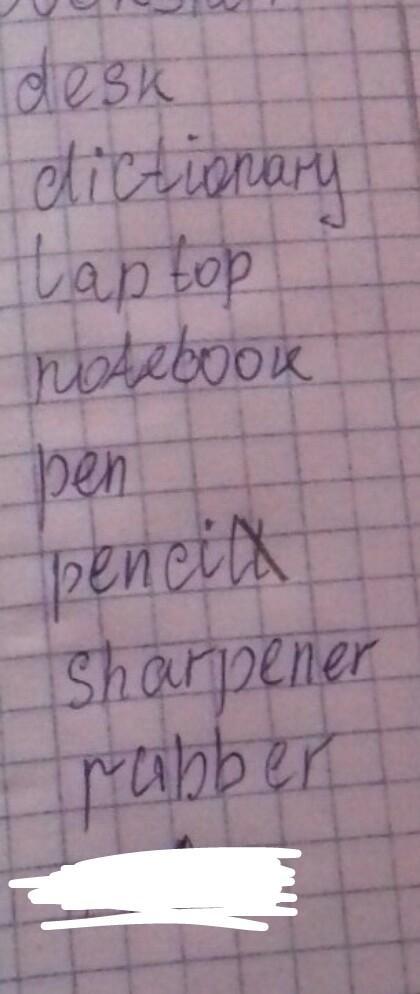 desk
dictionary
laptop
notebook
pen
pencil
sharpener
rubber